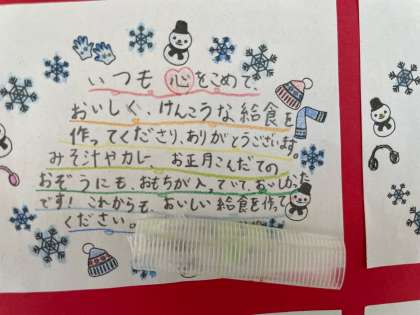 いつも心をこめて、
おいしく、けんこうな給食を
作ってくださり、ありがとうございます。
みそ汁やカレー、お正月こんだての
おぞうにも、おもちが入っていて、おいしかった
です！これからも、おいしい給食を作って
ください。